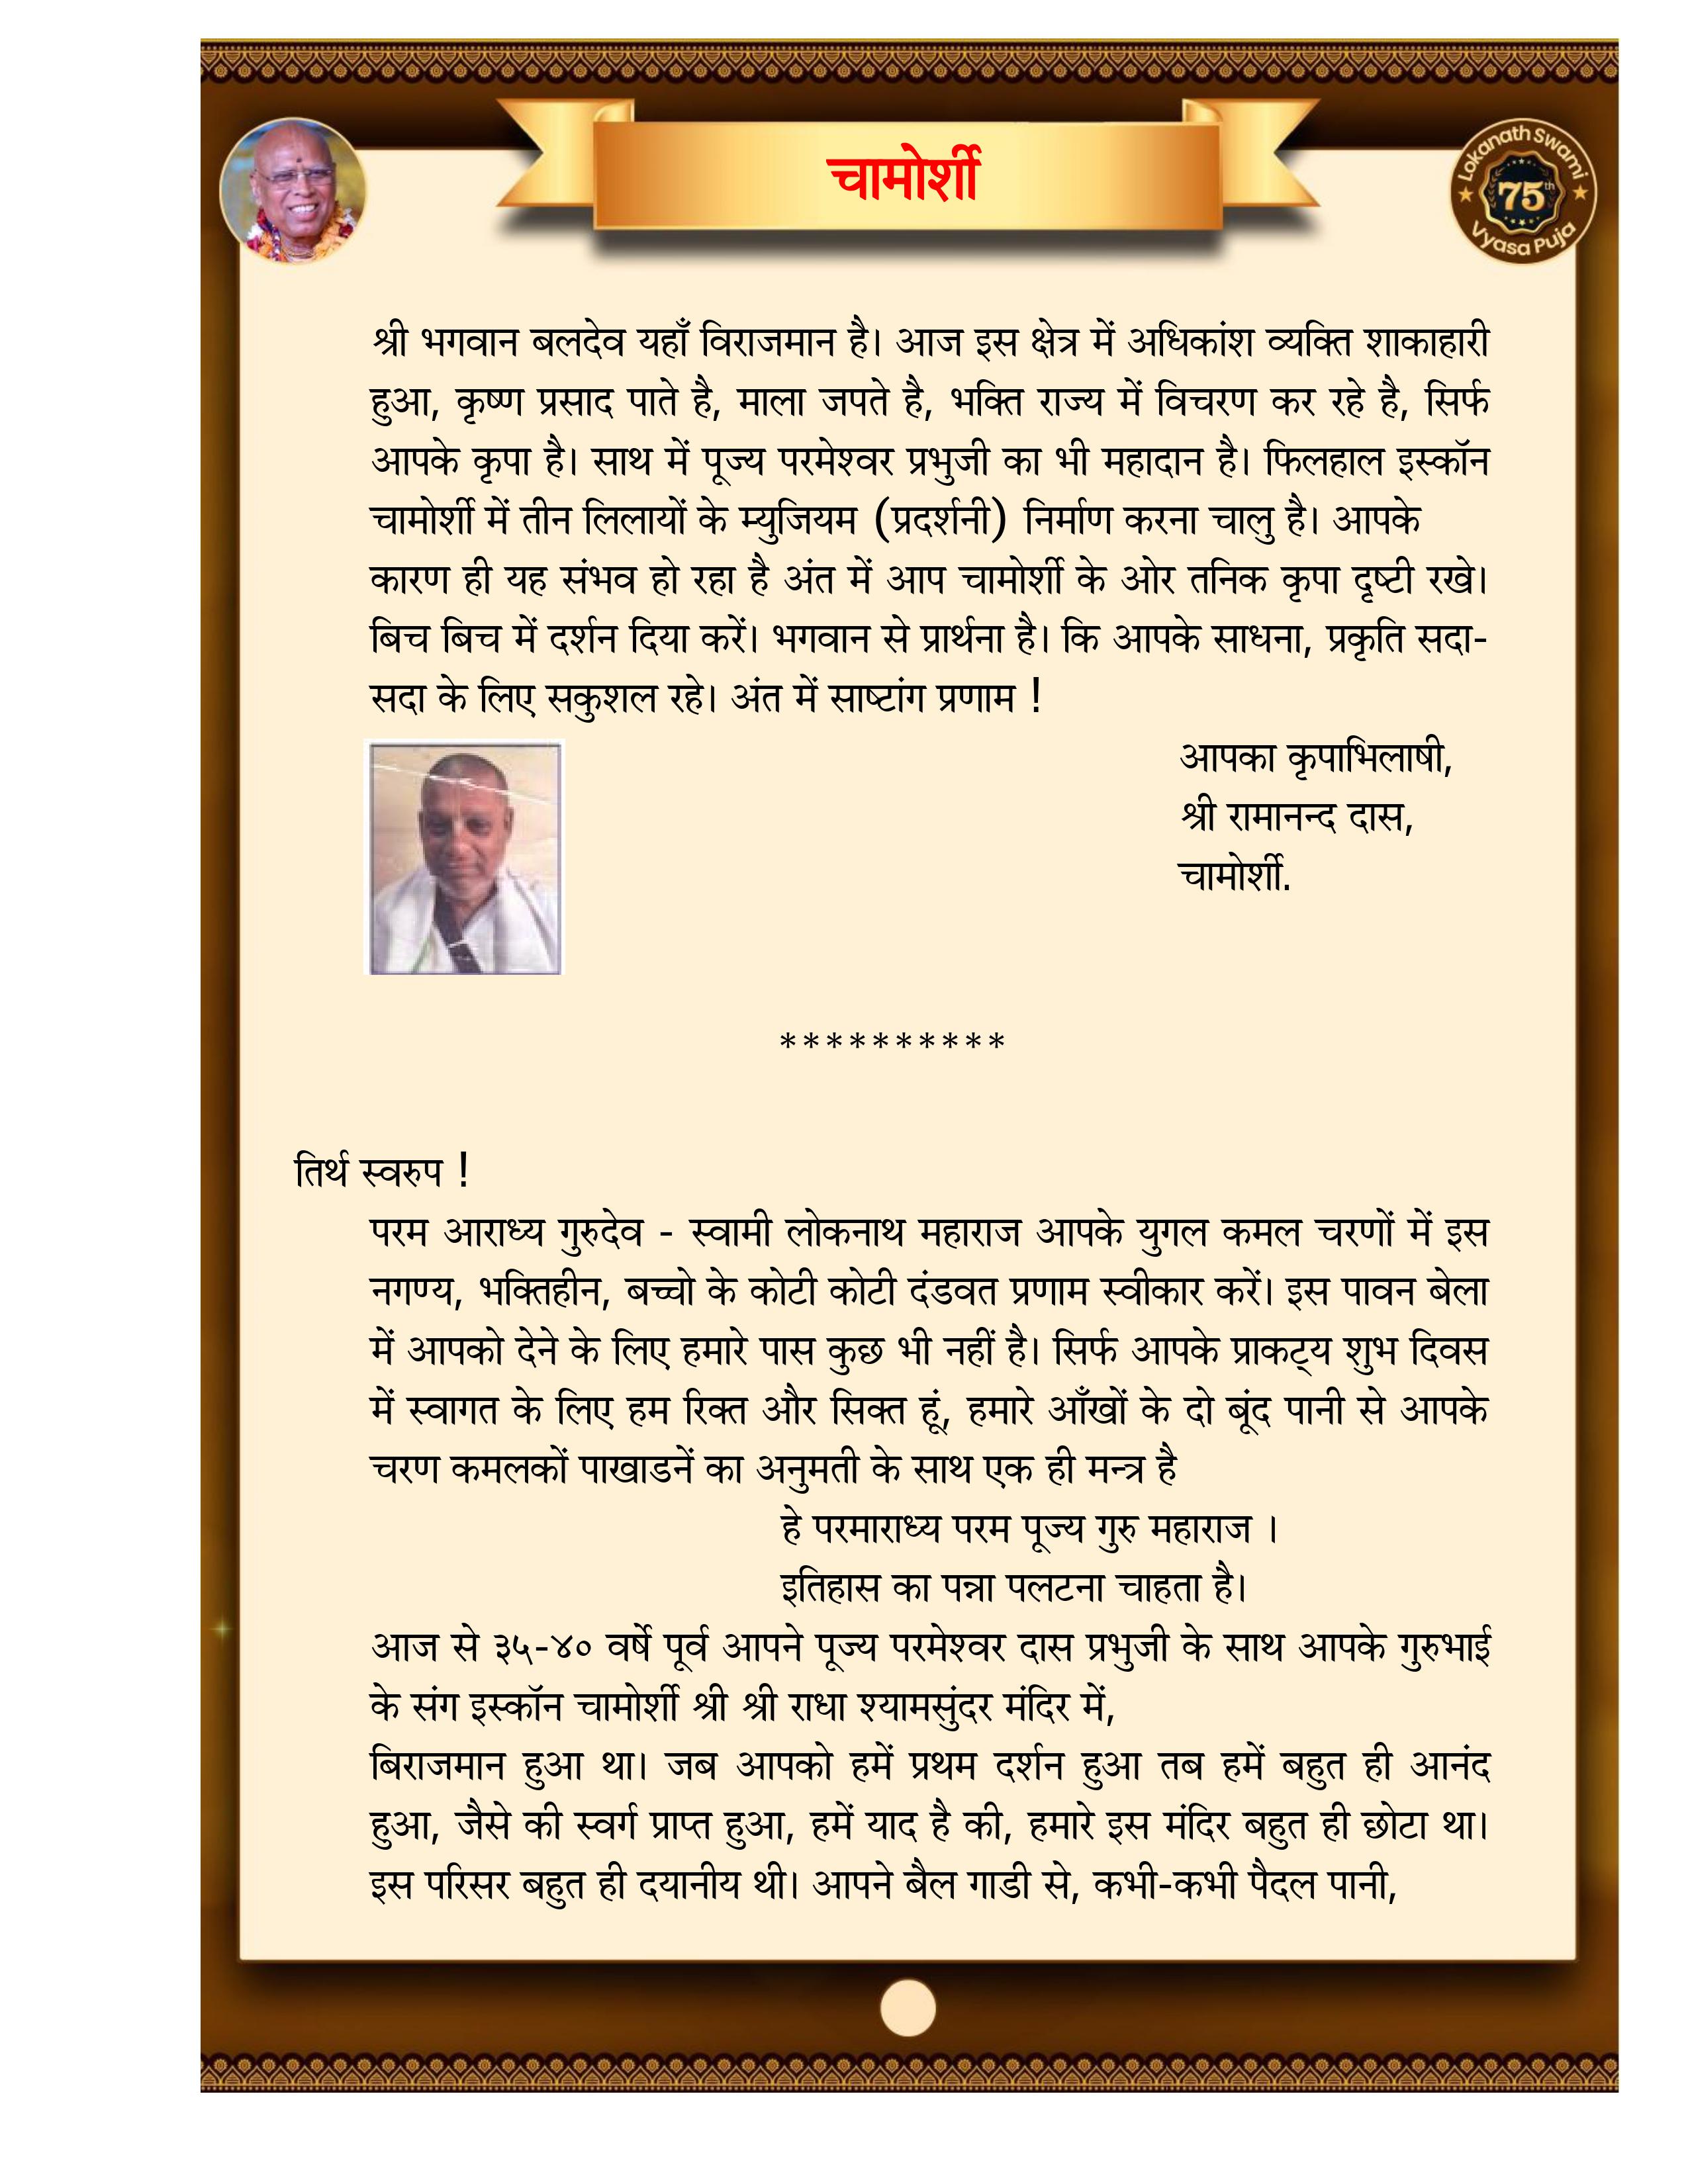 चामोर्शी
Lokanath Swami
75th
Vyasa Puja
श्री भगवान बलदेव यहाँ विराजमान है। आज इस क्षेत्र में अधिकांश व्यक्ति शाकाहारी
हुआ, कृष्ण प्रसाद पाते है, माला जपते है, भक्ति राज्य में विचरण कर रहे है, सिर्फ
आपके कृपा है। साथ में पूज्य परमेश्वर प्रभुजी का भी महादान है। फिलहाल इस्कॉन
चामोर्शी में तीन लिलायों के म्युजियम (प्रदर्शनी) निर्माण करना चालु है। आपके
कारण ही यह संभव हो रहा है अंत में आप चामोर्शी के ओर तनिक कृपा दृष्टी रखे।
बिच बिच में दर्शन दिया करें। भगवान से प्रार्थना है। कि आपके साधना, प्रकृति सदा-
सदा के लिए सकुशल रहे। अंत में साष्टांग प्रणाम !
आपका कृपाभिलाषी,
श्री रामानन्द दास,
चामोर्शी.
**********
तिर्थ स्वरुप !
परम आराध्य गुरुदेव - स्वामी लोकनाथ महाराज आपके युगल कमल चरणों में इस
नगण्य, भक्तिहीन, बच्चो के कोटी कोटी दंडवत प्रणाम स्वीकार करें। इस पावन बेला
में आपको देने के लिए हमारे पास कुछ भी नहीं है। सिर्फ आपके प्राकट्य शुभ दिवस
में स्वागत के लिए हम रिक्त और सिक्त हूं, हमारे आँखों के दो बूंद पानी से आपके
चरण कमलकों पाखाडनें का अनुमती के साथ एक ही मन्त्र है
हे परमाराध्य परम पूज्य गुरु महाराज ।
इतिहास का पन्ना पलटना चाहता है।
आज से ३५-४० वर्षे पूर्व आपने पूज्य परमेश्वर दास प्रभुजी के साथ आपके गुरुभाई
के संग इस्कॉन चामोर्शी श्री श्री राधा श्यामसुंदर मंदिर में,
बिराजमान हुआ था। जब आपको हमें प्रथम दर्शन हुआ तब हमें बहुत ही आनंद
हुआ, जैसे की स्वर्ग प्राप्त हुआ, हमें याद है की, हमारे इस मंदिर बहुत ही छोटा था।
इस परिसर बहुत ही दयानीय थी। आपने बैल गाडी से, कभी-कभी पैदल पानी,